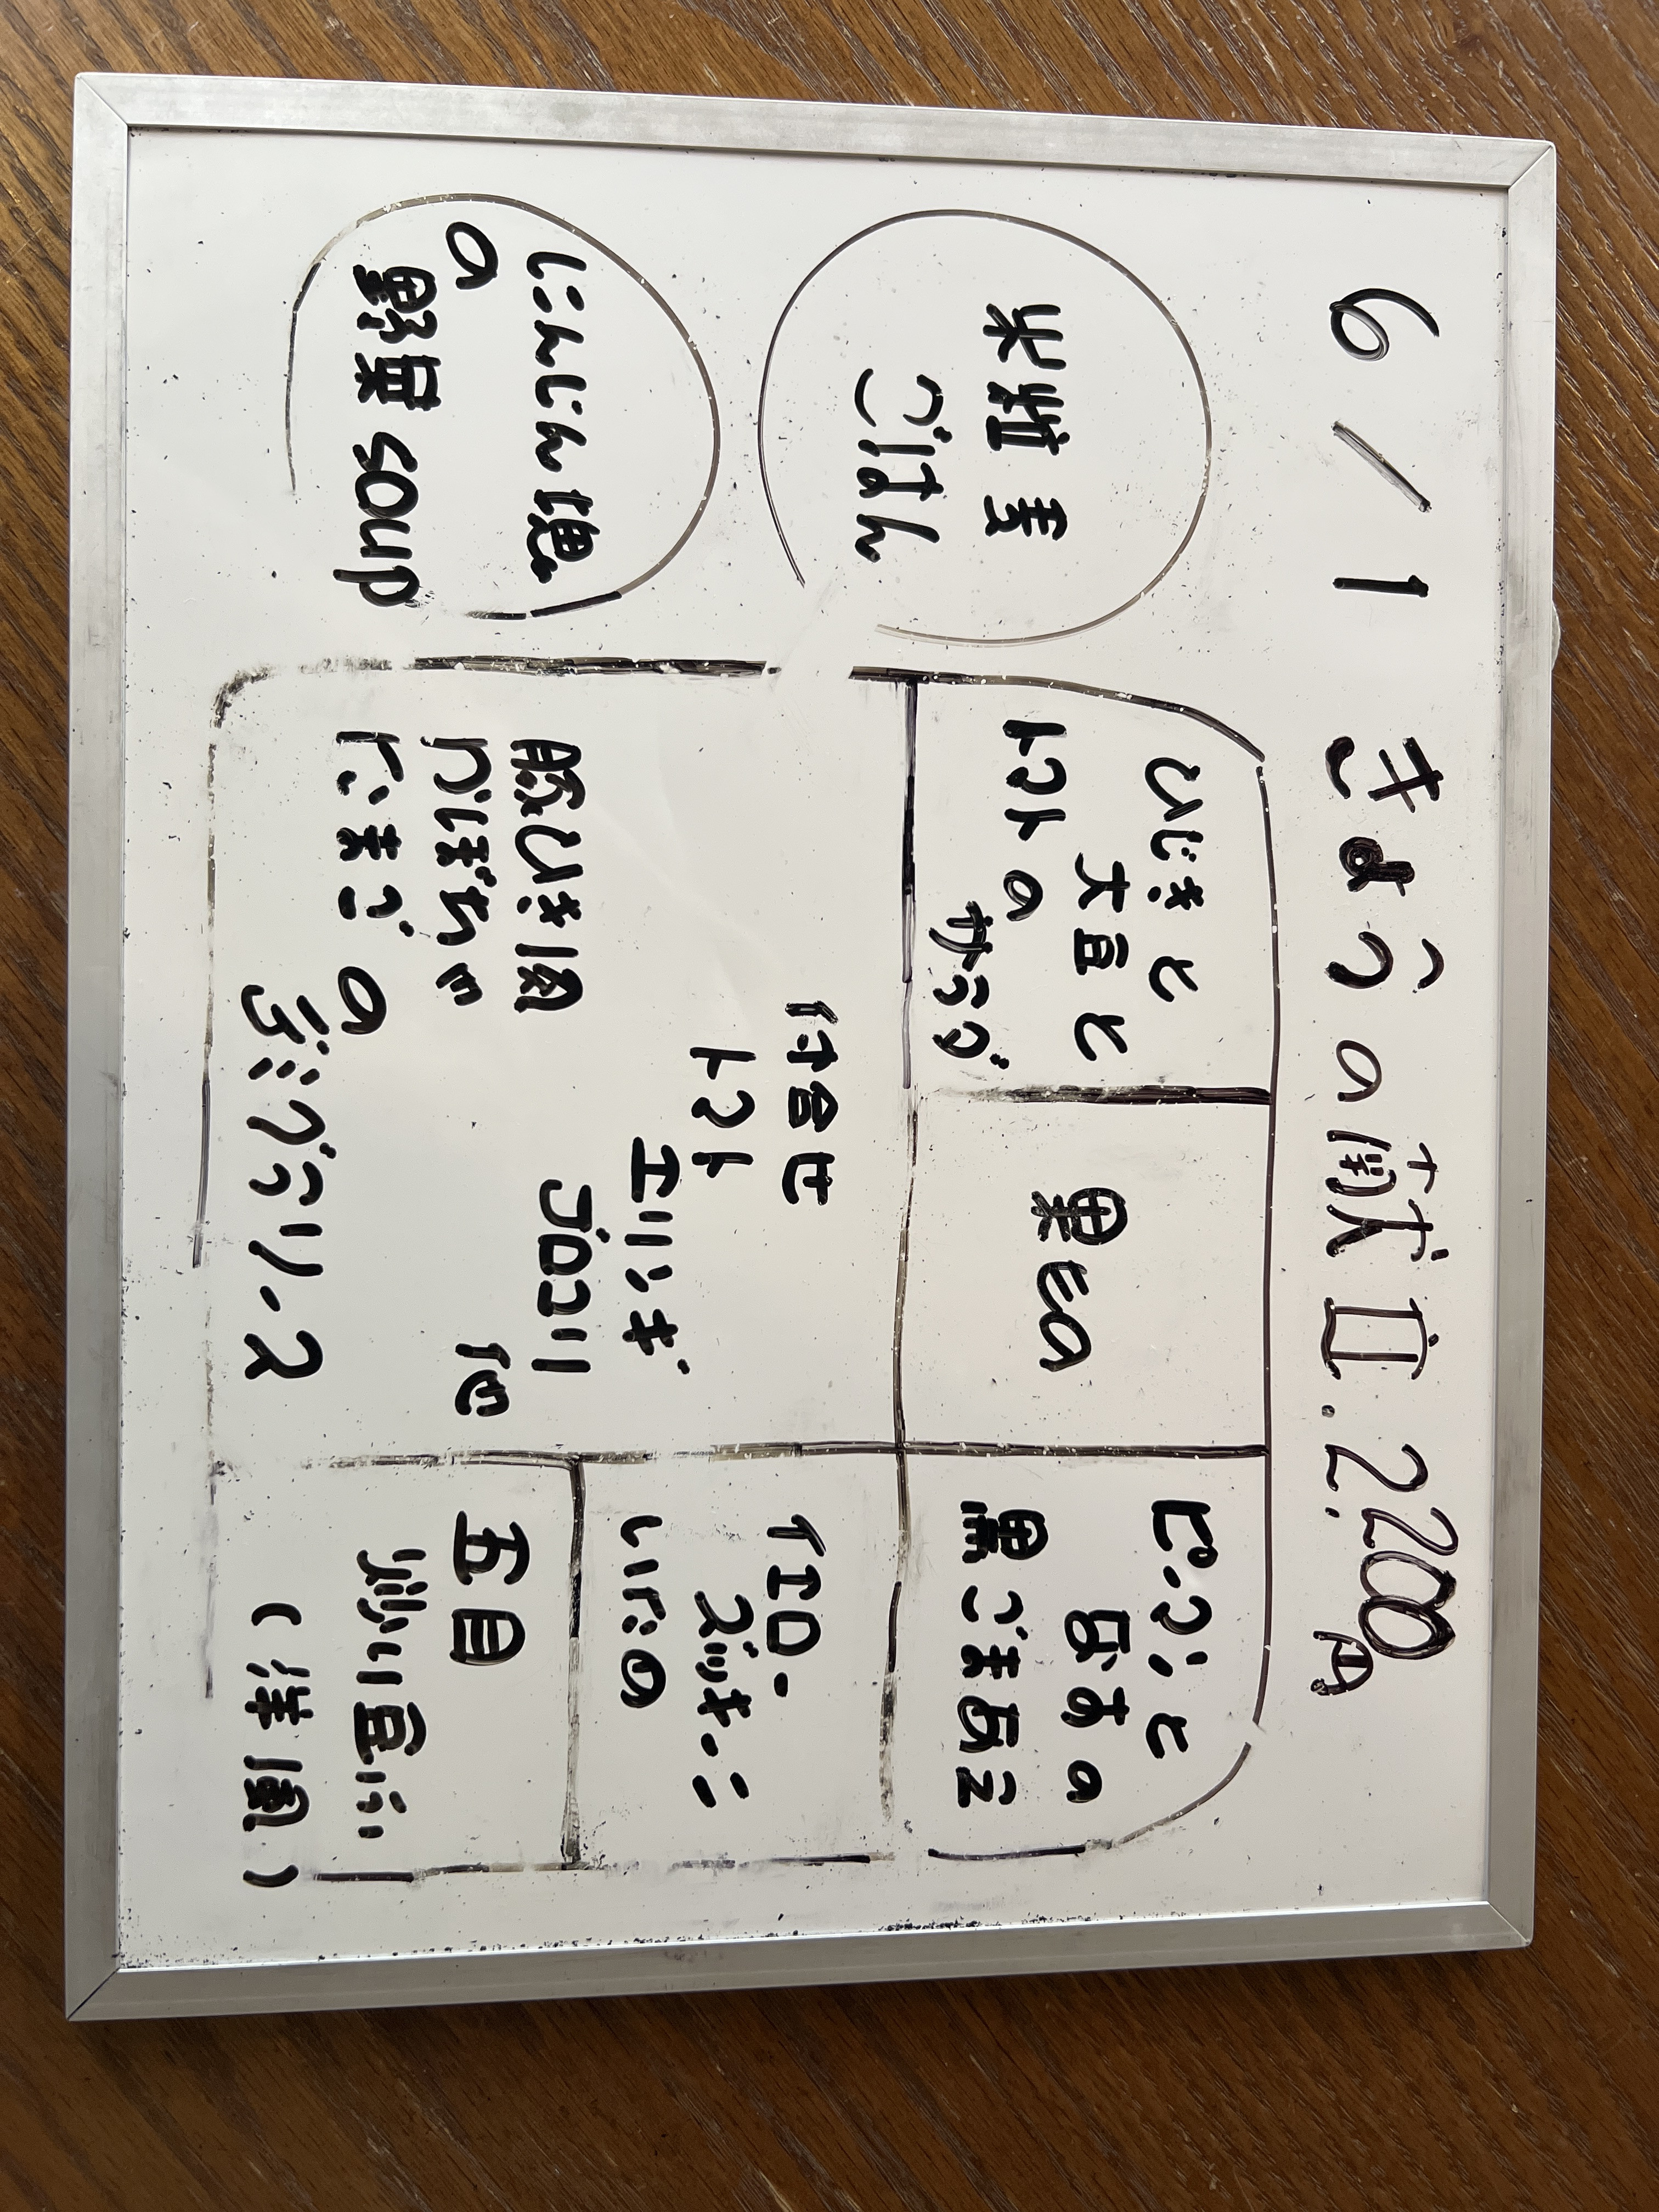 6/1 きょうの献立.2.200円
米粒麦
ごはん
にんじん
の
野菜soup
ひじきと
大豆と
トマトの
サラダ
果もの
ピーマンと
なすの
黒ごまあえ
付合せ
トマト
エリンギ
ブロコリ
他
豚ひき肉
かぼちゃ
たまご
の
デミグラソース
イエロー
ズッキーニ
いため
五目
炒り豆ふ
(洋風)